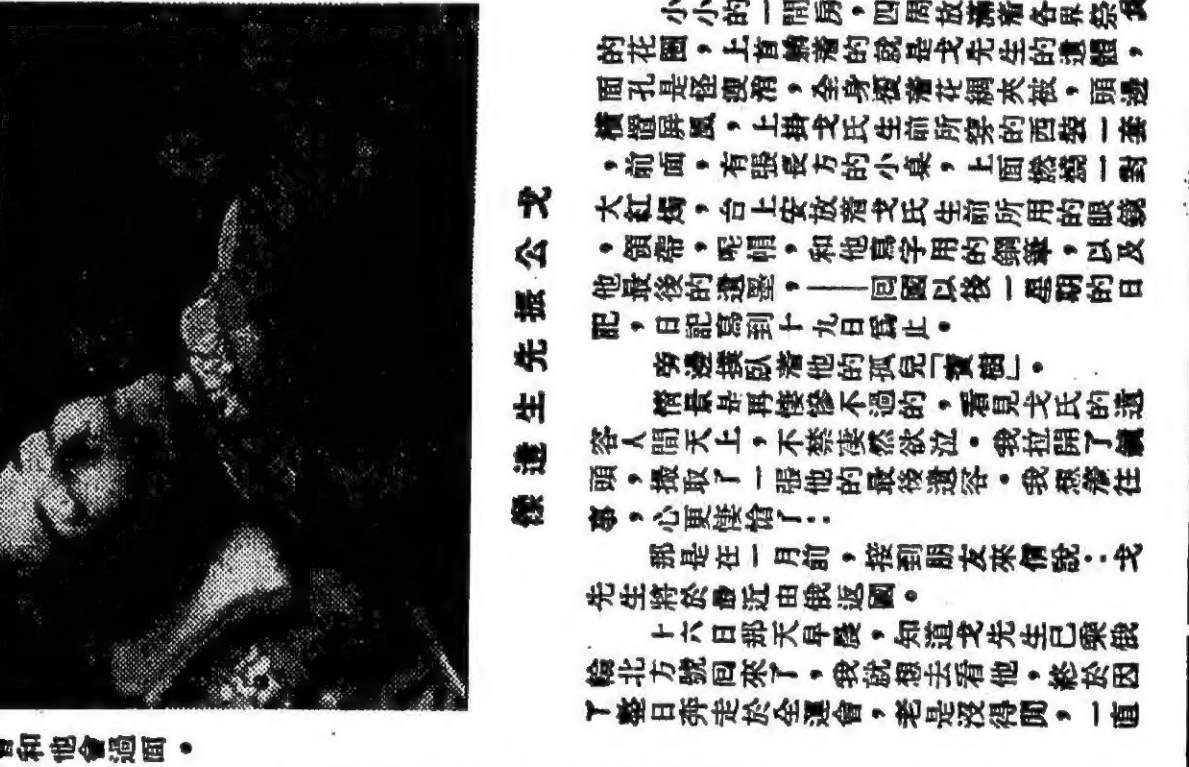 戈公振先生遺像
小小的一間房，四周放滿着各界祭奠
的花圈，上首躺着的就是戈先生的遺體，
面孔是怪瘦削，全身蓋着花綢夾被，頭邊
橫置屏風，上掛戈氏生前所穿的西裝一套
，前面，有張長方的小桌，上面燃燒一對
大紅燭，台上安放着戈氏生前所用的眼鏡
，領帶，呢帽，和他寫字用的鋼筆，以及
他最後的遺墨，——回國以後一星期的日
記，日記寫到十九日爲止。
旁邊橫臥着他的孤兒「寶樹」。
情景是再悽慘不過的，看見戈氏的遺
容人間天上，不禁悽然欲泣。我拉開了鏡
頭，攝取了一張他的最後遺容。我想着往
事，心更悽愴了：
那是在一月前，接到朋友來信說：戈
先生將於最近由俄返國。
十六日那天早晨，知道戈先生已乘俄
輪北方號回來了，我就想去看他，終於因
了整日奔走於全運會，老是沒得閒，一直
和他會過面。